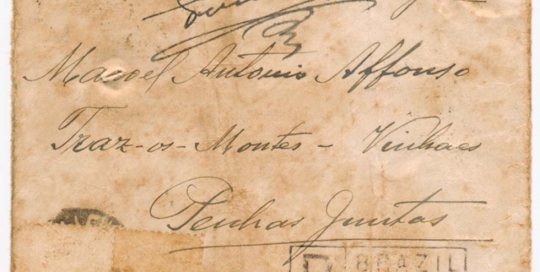 Manoel Antonio Affonso
Traz-os-Montes - Vinhaes
Penhas Juntas
BRAZIL